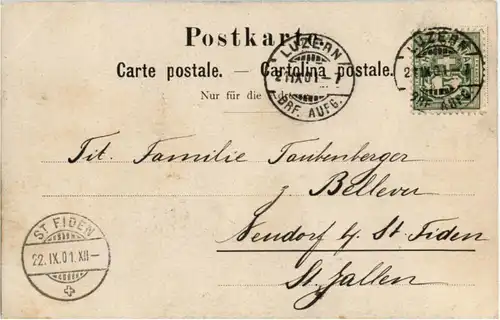 Postkarte
Carte postale. — Cartolina postale.
Nur für die
LUZERN
21.IX.01.–7
BRF. AUFG.
LUZERN
BRF. AUFG.
Tit. Familie Taubenberger
z. Bellevue
Neudorf b/ St. Fiden
St. Gallen
ST FIDEN
22.IX.01.XII–